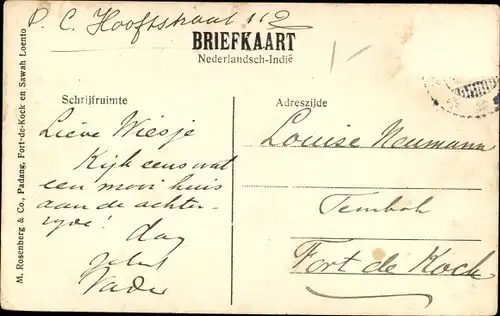 P. C. Hooftstraat 112
BRIEFKAART
Nederlandsch-Indië
Schrijfruimte
Lieve Wiesje
Kijk eens wat
een mooi huis
aan de achter-
zyde!
dag
Vader
Adreszijde
Louise Neumann
Tembok
Fort de Kock
M. Rosenberg & Co., Padang, Fort-de-Kock en Sawah Loento